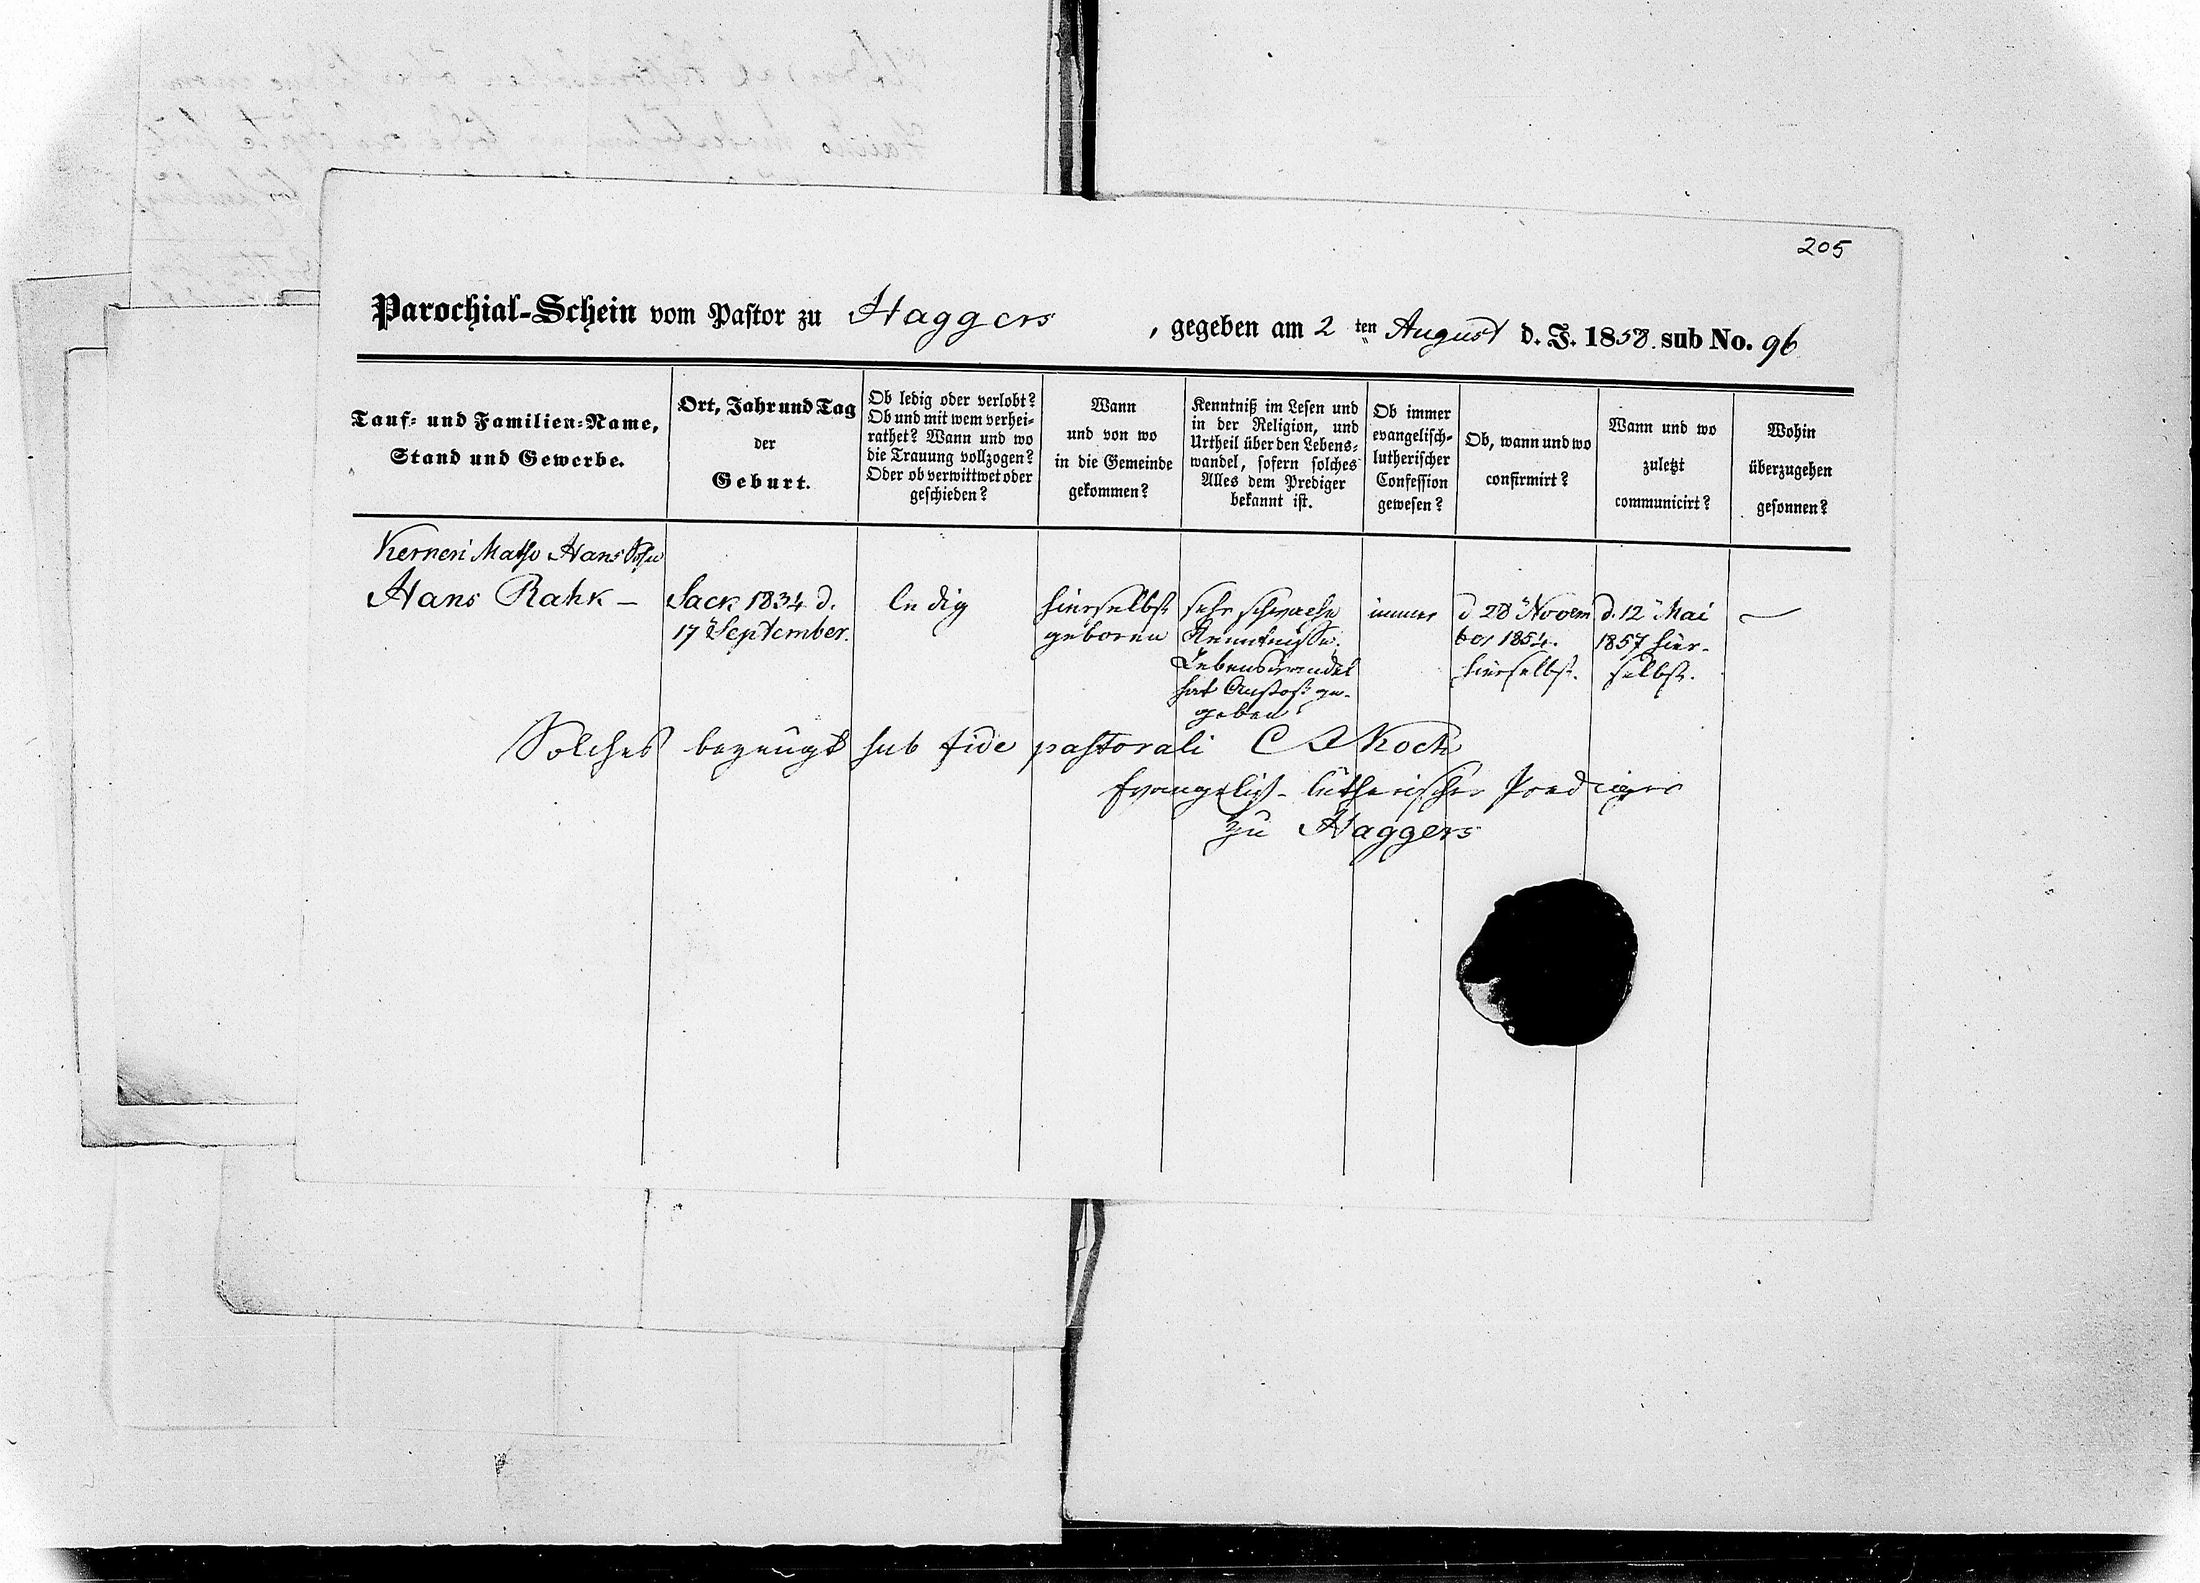 205
Parochial-Schein vom Pastor zu Haggers, gegeben am 2 ten August d. J. 1858. sub No. 96
Tauf- und Familien-Name,
Stand und Gewerbe.
Ort, Jahr und Tag
der
Geburt.
Ob ledig oder verlobt?
Ob und mit wem verhei-
rathet? Wann und wo
die Trauung vollzogen?
Oder ob verwittwet oder
geschieden?
Wann
und von wo
in die Gemeinde
gekommen?
Kenntniß im Lesen und
in der Religion, und
Urtheil über den Lebens-
wandel, sofern solches
Alles dem Prediger
bekannt ist.
Ob immer
evangelisch-
lutherischer
Confession
gewesen?
Ob, wann und wo
confirmirt?
Wann und wo
zuletzt
communicirt?
Wohin
überzugehen
gesonnen?
Kerneri Hans
Hans Rahk —
Sack 1834 d.
17 September.
ledig
hierselbst
geboren
sehr schwache
Kenntnisse.
Lebenswandel
hat Anstoß ge-
geben
immer
d 28 Novem
ber 1854.
hierselbst.
d. 12 Mai
1857 hier-
selbst.
—
Solches bezeugt sub fide pastorali C Koch
Evangelisch-lutherischer Prediger
zu Haggers